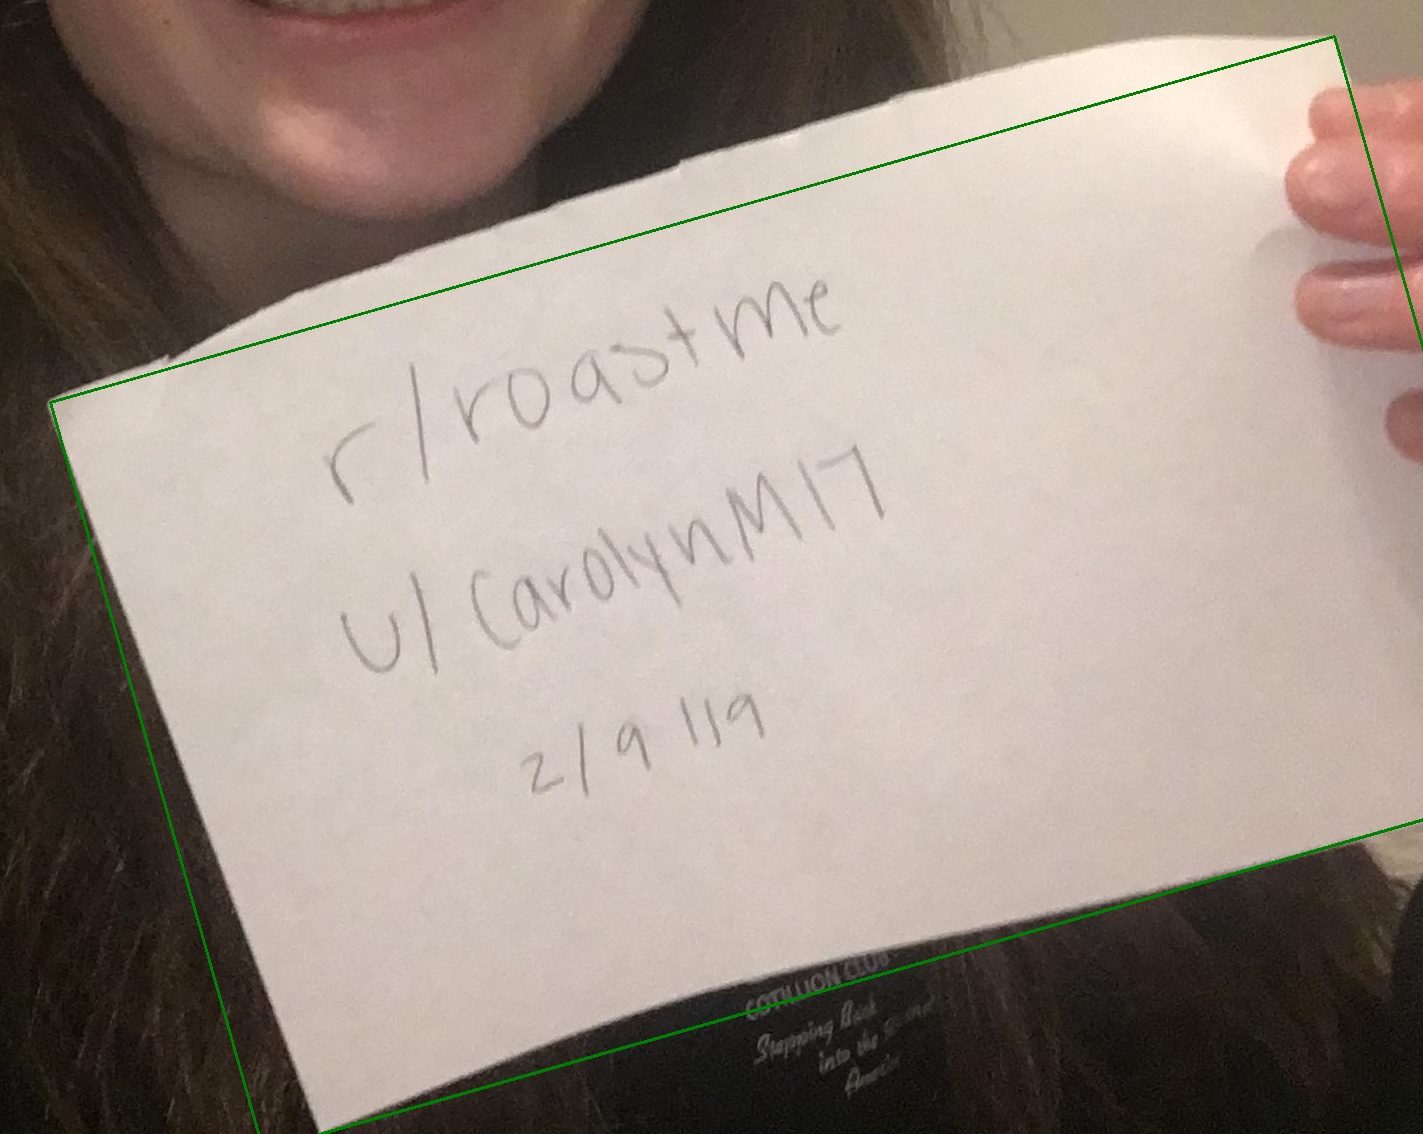 r/roastme
u/CarolynM17
2/9/19
COTILLION CLUB
Stepping Back
into the